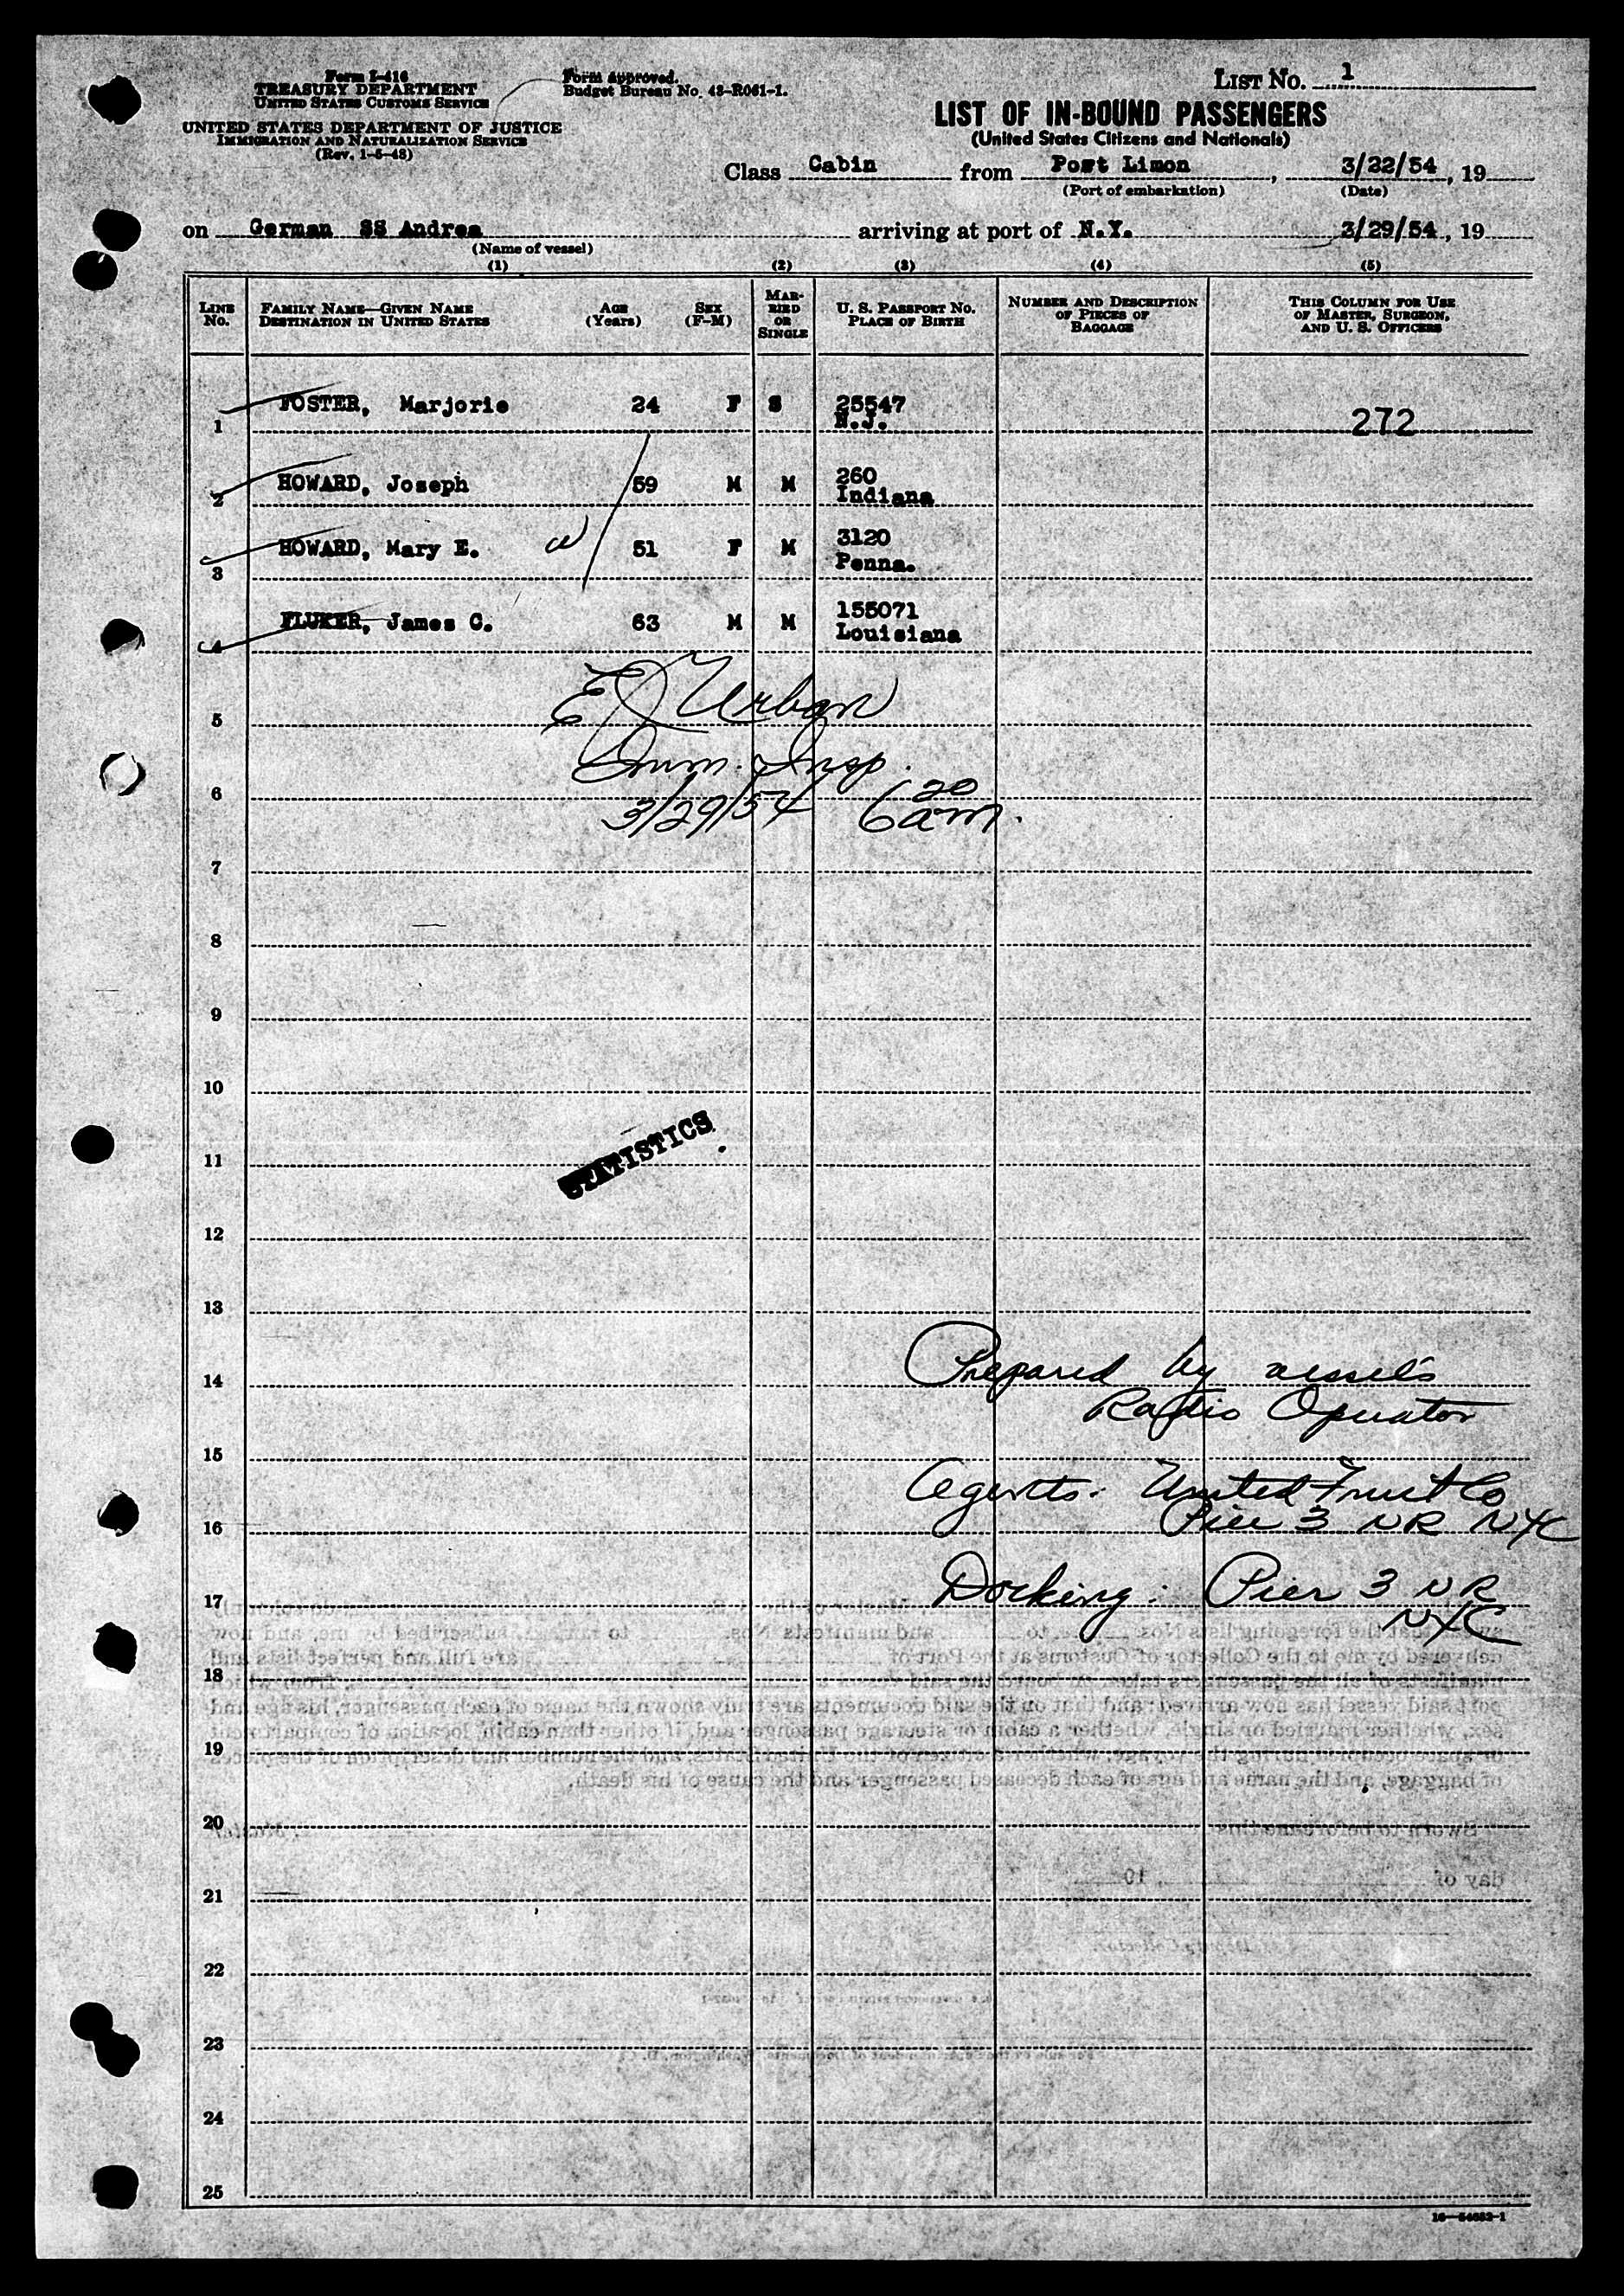 Form I-416
TREASURY DEPARTMENT
UNITED STATES CUSTOMS SERVICE
UNITED STATES DEPARTMENT OF JUSTICE
IMMIGRATION AND NATURALIZATION SERVICE
(Rev. 1-5-48)
Form approved.
Budget Bureau No. 43-R061-1.
LIST NO. 1
LIST OF IN-BOUND PASSENGERS
(United States Citizens and Nationals)
Class Cabin from Port Limon, 3/22/54, 19
(Port of embarkation) (Date)
on German SS Andrea arriving at port of N.Y. 3/29/54, 19
(Name of vessel)
(1) (2) (3) (4) (5)
LINE NO. FAMILY NAME—GIVEN NAME DESTINATION IN UNITED STATES AGE (Years) SEX (F-M) MARRIED OR SINGLE U. S. PASSPORT NO. PLACE OF BIRTH NUMBER AND DESCRIPTION OF PIECES OF BAGGAGE THIS COLUMN FOR USE OF MASTER, SURGEON, AND U. S. OFFICERS
1 FOSTER, Marjorie 24 F S 25547 N.J. 272
2 HOWARD, Joseph 59 M M 260 Indiana
3 HOWARD, Mary E. w 51 F M 3120 Penna.
4 FLUKER, James C. 63 M M 155071 Louisiana
E J Urban
5
Imm. Insp.
6
3/29/54 6 20 am.
7
8
9
10
STATISTICS
11
12
13
Prepared by vessel's
14
Radio Operator
15
Agents: United Fruit Co
16
Pier 3 NR NYC
Docking: Pier 3 NR
17
NYC
18
19
20
21
22
23
24
25
16—54682-1